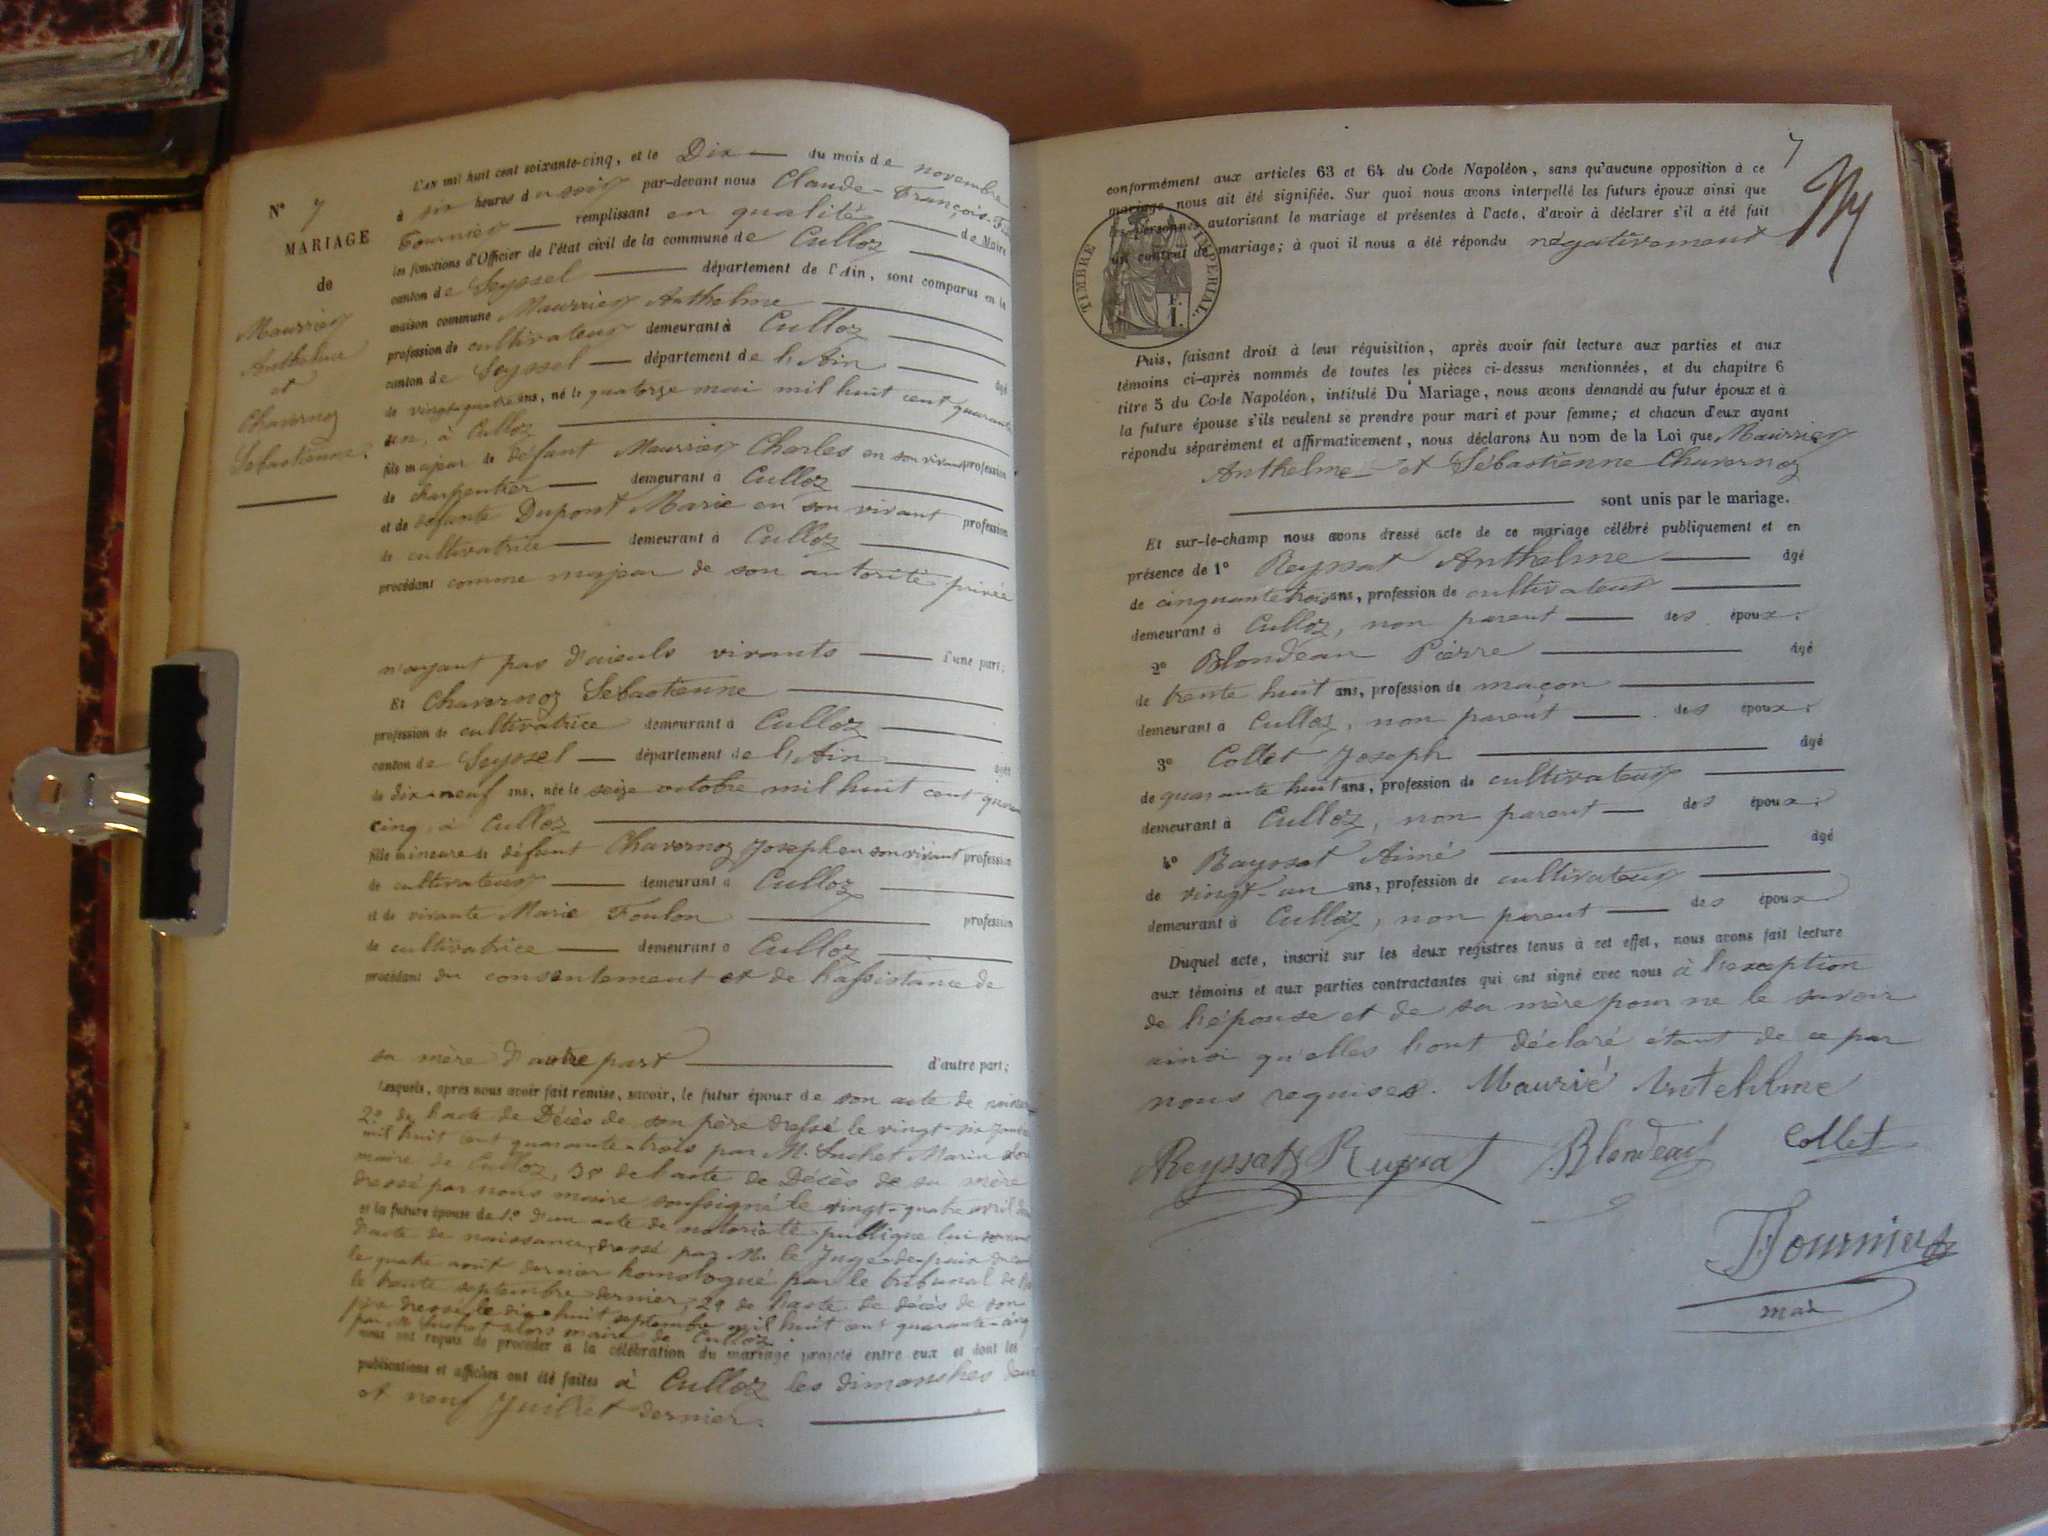 N° 7
MARIAGE
de
Maurrier
Anthelme
et
Chavernoz
Sébastienne.
L'an mil huit cent soixante-cinq, et le Dix du mois de novembre
à six heures du soir par-devant nous Claude-François-F
Fournier remplissant en qualité de Maire
les fonctions d'Officier de l'état civil de la commune de Culloz
canton de Seyssel département de l'Ain, sont comparus en la
maison commune Maurrier Anthelme
profession de cultivateur demeurant à Culloz
canton de Seyssel département de l'Ain âgé
de vingt-quatre ans, né le quatorze mai mil huit cent quarante
un, à Culloz
fils majeur de défunt Maurrier Charles en son vivant profession
de charpentier demeurant à Culloz
et de défunte Dupont Marie en son vivant profession
de cultivatrice demeurant à Culloz
procédant comme majeur de son autorité privée
n'ayant pas d'aïeuls vivants d'une part;
Et Chavernoz Sébastienne
profession de cultivatrice demeurant à Culloz
canton de Seyssel département de l'Ain âgée
de dix-neuf ans, née le seize octobre mil huit cent quarante
cinq, à Culloz
fille mineure de défunt Chavernoz Joseph en son vivant profession
de cultivateur demeurant à Culloz
et de vivante Marie Foulon profession
de cultivatrice demeurant à Culloz
procédant du consentement et de l'assistance de
sa mère d'autre part d'autre part;
Lesquels, après nous avoir fait remise, savoir, le futur époux de son acte de naissance
2° de l'acte de Décès de son père dressé le vingt-six
mil huit cent quarante-trois par M. Suchet Marin alors
maire de Culloz, 3° de l'acte de Décès de sa mère
dressé par nous maire soussigné le vingt-quatre avril
et la future épouse de 1° d'un acte de notoriété publique lui
d'acte de naissance, dressé par M. le Juge-de-paix de
le quatre août dernier homologué par le tribunal de
le trente septembre dernier, 2° de l'acte de décès de son
père dressé le dix-huit septembre mil huit cent quarante-cinq
par M. Suchet alors maire de Culloz
nous ont requis de procéder à la célébration du mariage projeté entre eux et dont les
publications et affiches ont été faites à Culloz les dimanches deux
et neuf Juillet dernier.
7
conformément aux articles 63 et 64 du Code Napoléon, sans qu'aucune opposition à ce
mariage nous ait été signifiée. Sur quoi nous avons interpellé les futurs époux ainsi que
les personnes autorisant le mariage et présentes à l'acte, d'avoir à déclarer s'il a été fait
un contrat de mariage; à quoi il nous a été répondu négativement
TIMBRE IMPERIAL.
Puis, faisant droit à leur réquisition, après avoir fait lecture aux parties et aux
témoins ci-après nommés de toutes les pièces ci-dessus mentionnées, et du chapitre 6
titre 5 du Code Napoléon, intitulé Du Mariage, nous avons demandé au futur époux et à
la future épouse s'ils veulent se prendre pour mari et pour femme; et chacun d'eux ayant
répondu séparément et affirmativement, nous déclarons Au nom de la Loi que Maurrier
Anthelme et Sébastienne Chavernoz
sont unis par le mariage.
Et sur-le-champ nous avons dressé acte de ce mariage célébré publiquement et en
présence de 1° Reyssat Anthelme âgé
de cinquante trois ans, profession de cultivateur
demeurant à Culloz, non parent des époux.
2° Blondeau Pierre âgé
de trente huit ans, profession de maçon
demeurant à Culloz, non parent des époux.
3° Collet Joseph âgé
de quarante huit ans, profession de cultivateur
demeurant à Culloz, non parent des époux.
4° Rayssat Aimé âgé
de vingt-un ans, profession de cultivateur
demeurant à Culloz, non parent des époux
Duquel acte, inscrit sur les deux registres tenus à cet effet, nous avons fait lecture
aux témoins et aux parties contractantes qui ont signé avec nous à l'exception
de l'épouse et de sa mère pour ne le savoir
ainsi qu'elles l'ont déclaré étant de ce par
nous requises. Maurié Antehlme
Reyssat Blondeau Collet
Fournier
mair